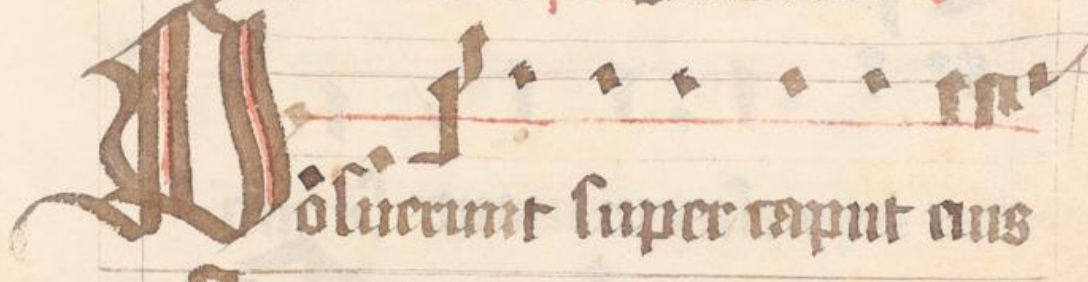 Posuerunt super caput eius